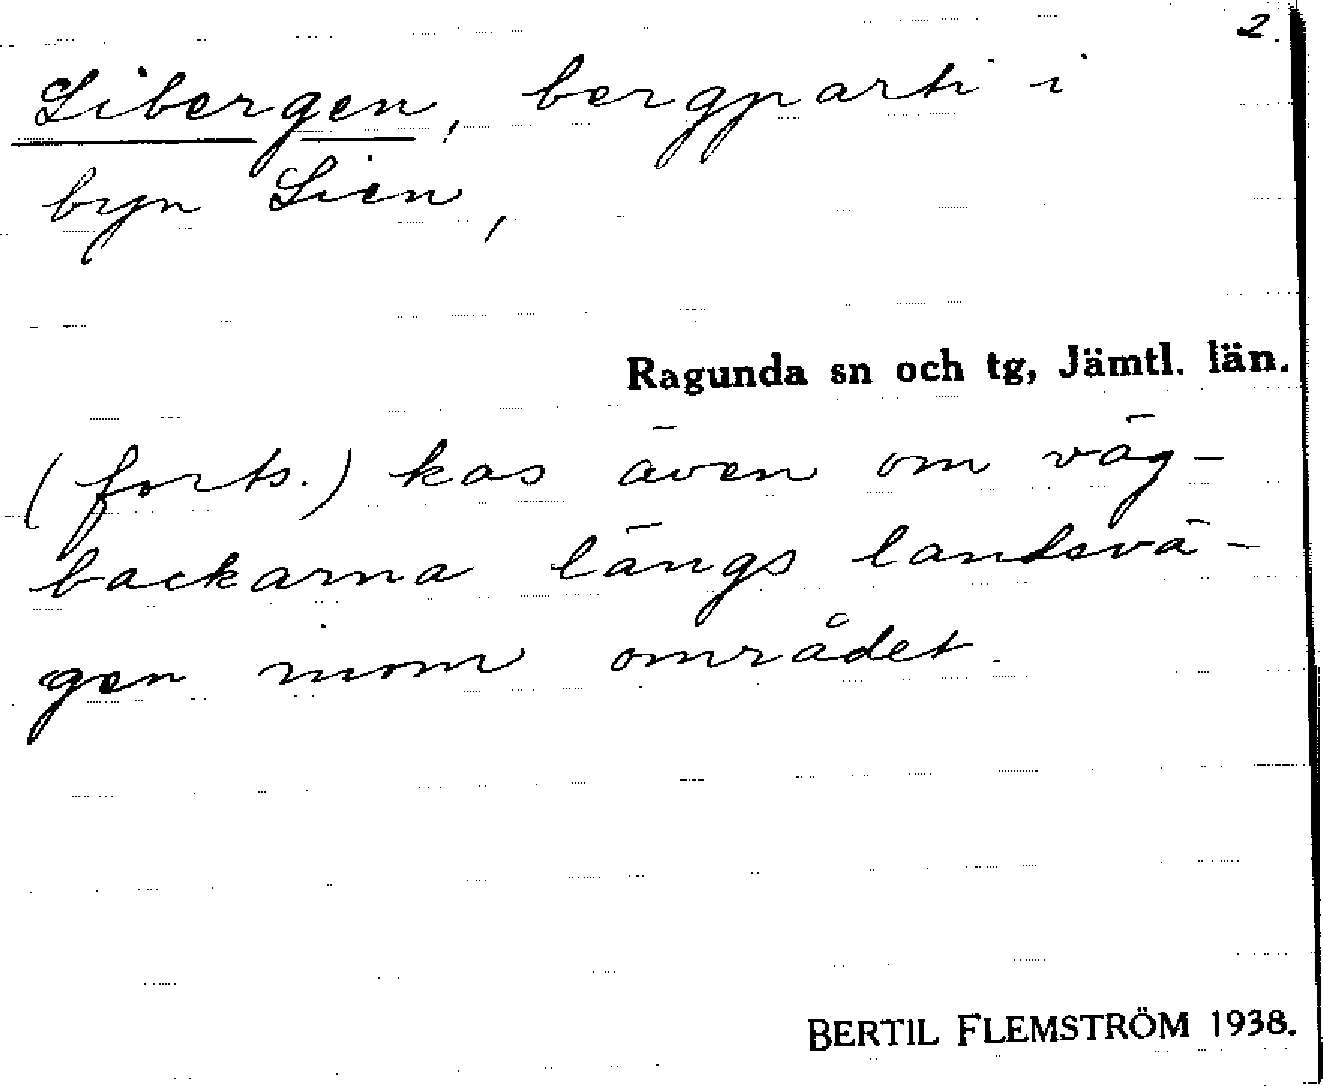 2.
Libergen, bergparti i
byn Lien,
Ragunda sn och tg, Jämtl. län.
(forts.) kas även om väg-
backarna längs landsvä-
gen inom området.
BERTIL FLEMSTRÖM 1938.